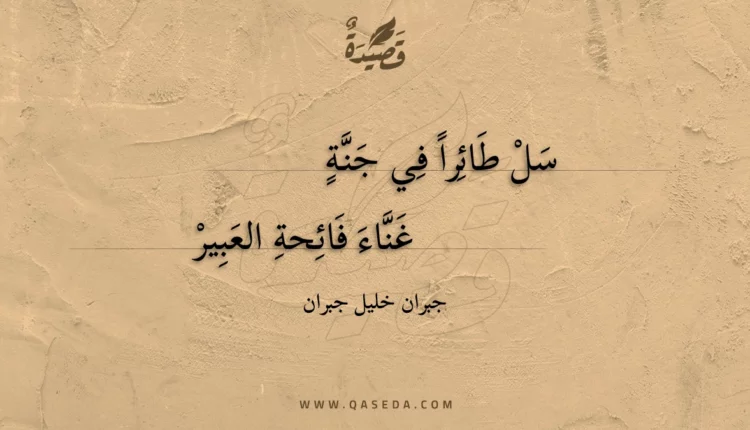 قَصِيدَةٌ
سَلْ طَائِراً فِي جَنَّةٍ
غَنَّاءَ فَائِحةِ العَبِيرْ
جبران خليل جبران
WWW.QASEDA.COM